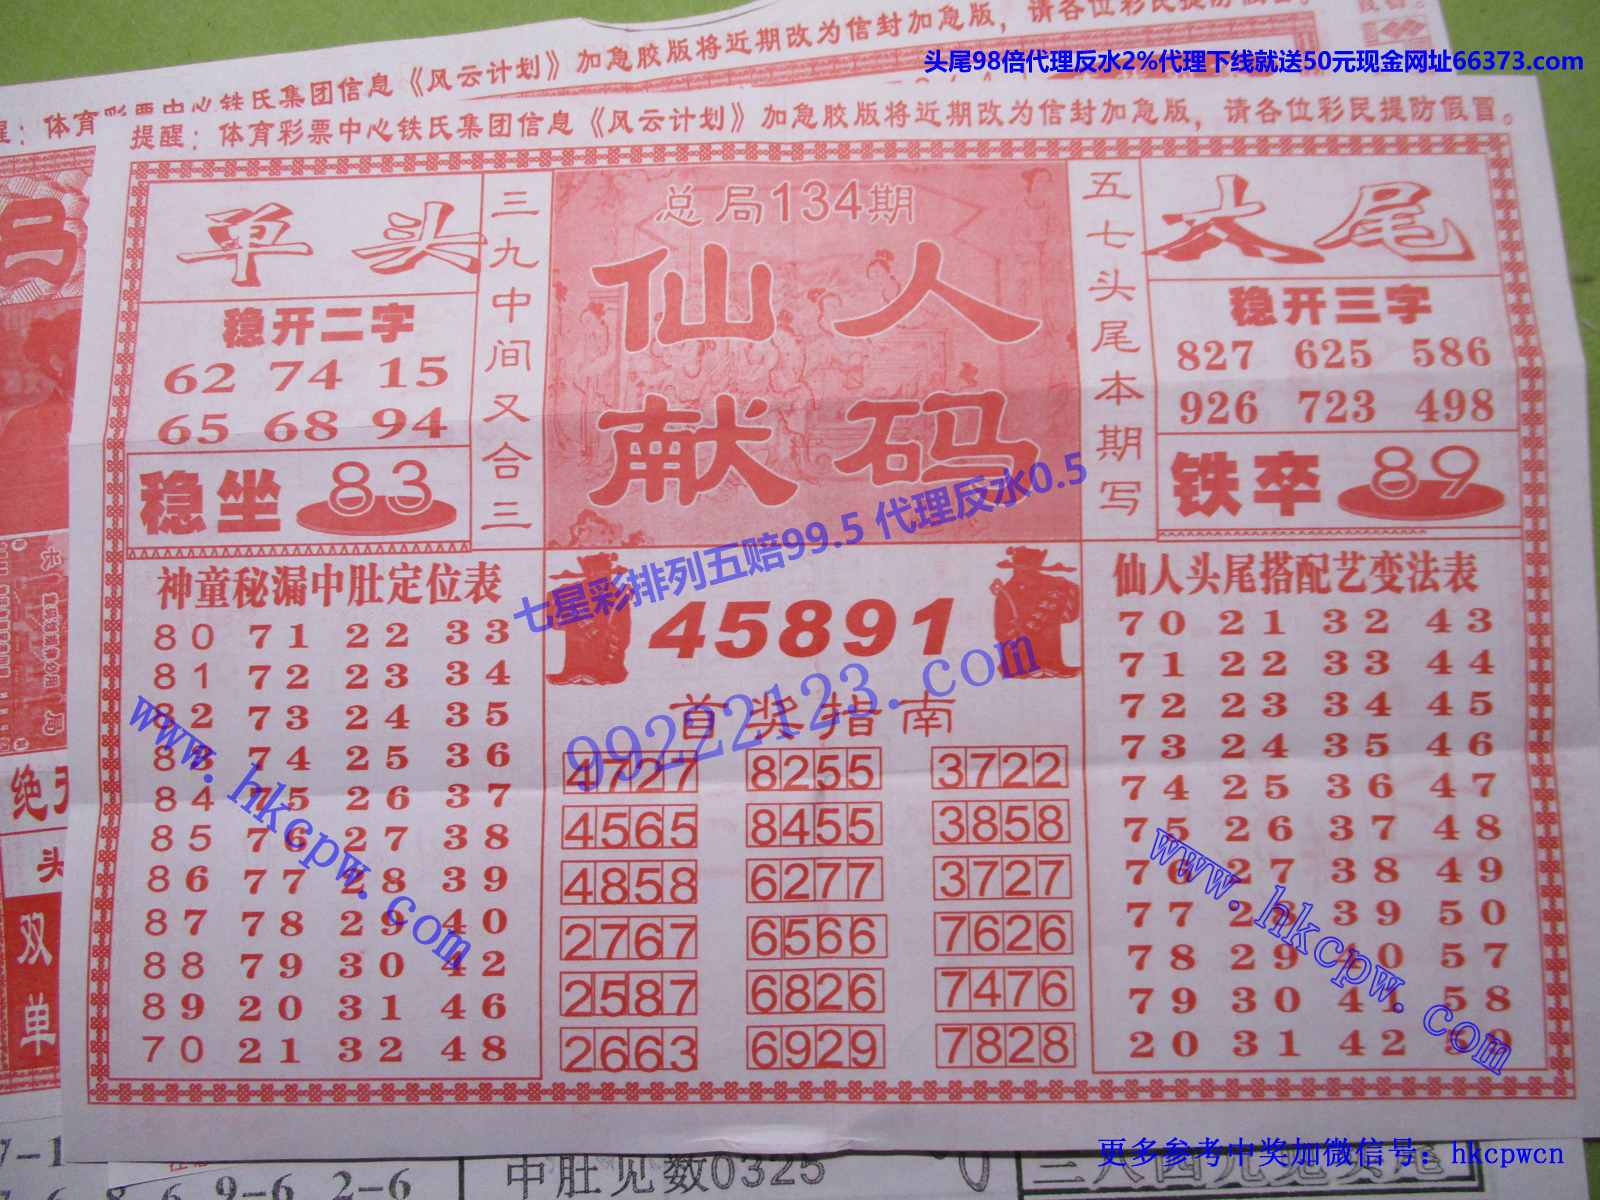 加急胶版将近期改为信封加急版，请各位彩民提防
体育彩票中心铁氏集团信息《风云计划》
头尾98倍代理反水2%代理下线就送50元现金网址66373.com
提醒：体育彩票中心铁氏集团信息《风云计划》加急胶版将近期改为信封加急版，请各位彩民提防假冒。
单头
稳开二字
62 74 15
65 68 94
稳坐 83
三九中间又合三
总局134期
仙人
献码
五七头尾本期写
大尾
稳开三字
827 625 586
926 723 498
铁卒 89
七星彩排列五赔99.5 代理反水0.5
神童秘漏中肚定位表
80 71 22 33
81 72 23 34
82 73 24 35
83 74 25 36
84 75 26 37
85 76 27 38
86 77 28 39
87 78 29 40
88 79 30 42
89 20 31 46
70 21 32 48
www.hkcpw.com
45891
99222123.com
首奖指南
4727 8255 3722
4565 8455 3858
4858 6277 3727
2767 6566 7626
2587 6826 7476
2663 6929 7828
仙人头尾搭配艺变法表
70 21 32 43
71 22 33 44
72 23 34 45
73 24 35 46
74 25 36 47
75 26 37 48
76 27 38 49
77 28 39 50
78 29 40 57
79 30 41 58
20 31 42 59
www.hkcpw.com
绝
头
双
单
局
更多参考中奖加微信号：hkcpwcn
7-1
8 6 9-6 2-6
中肚见数0325